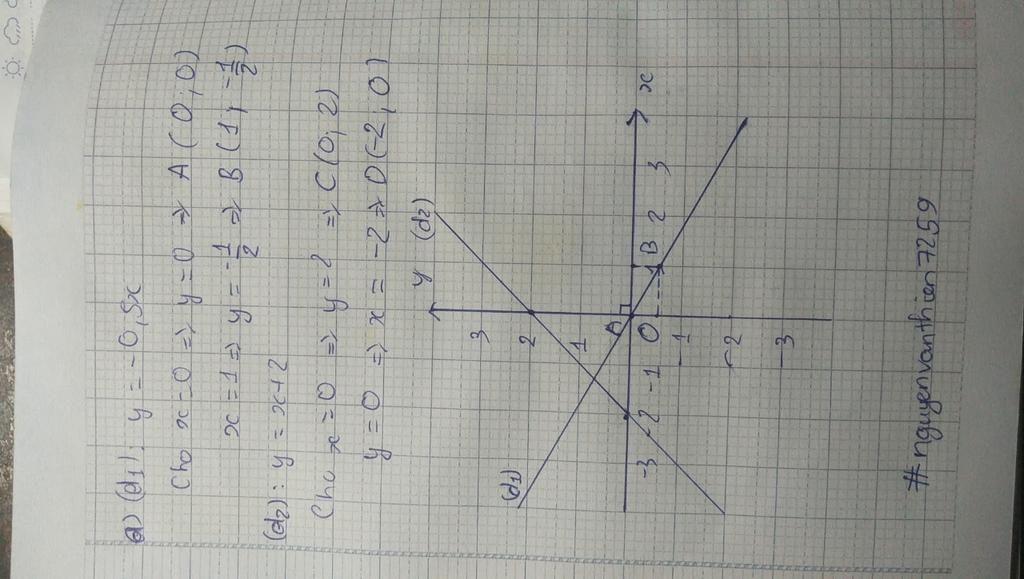 a) (d1): y = -0,5x
Cho x=0 => y=0 => A(0;0)
x=1 => y=-1/2 => B(1;-1/2)
(d2): y=x+2
Cho x=0 => y=2 => C(0;2)
y=0 => x=-2 => D(-2;0)
y (d2)
3
(d1) 2
1
A B x
-3 -2 -1 O 2 3
-1
-2
-3
#nguyenvanthien7259